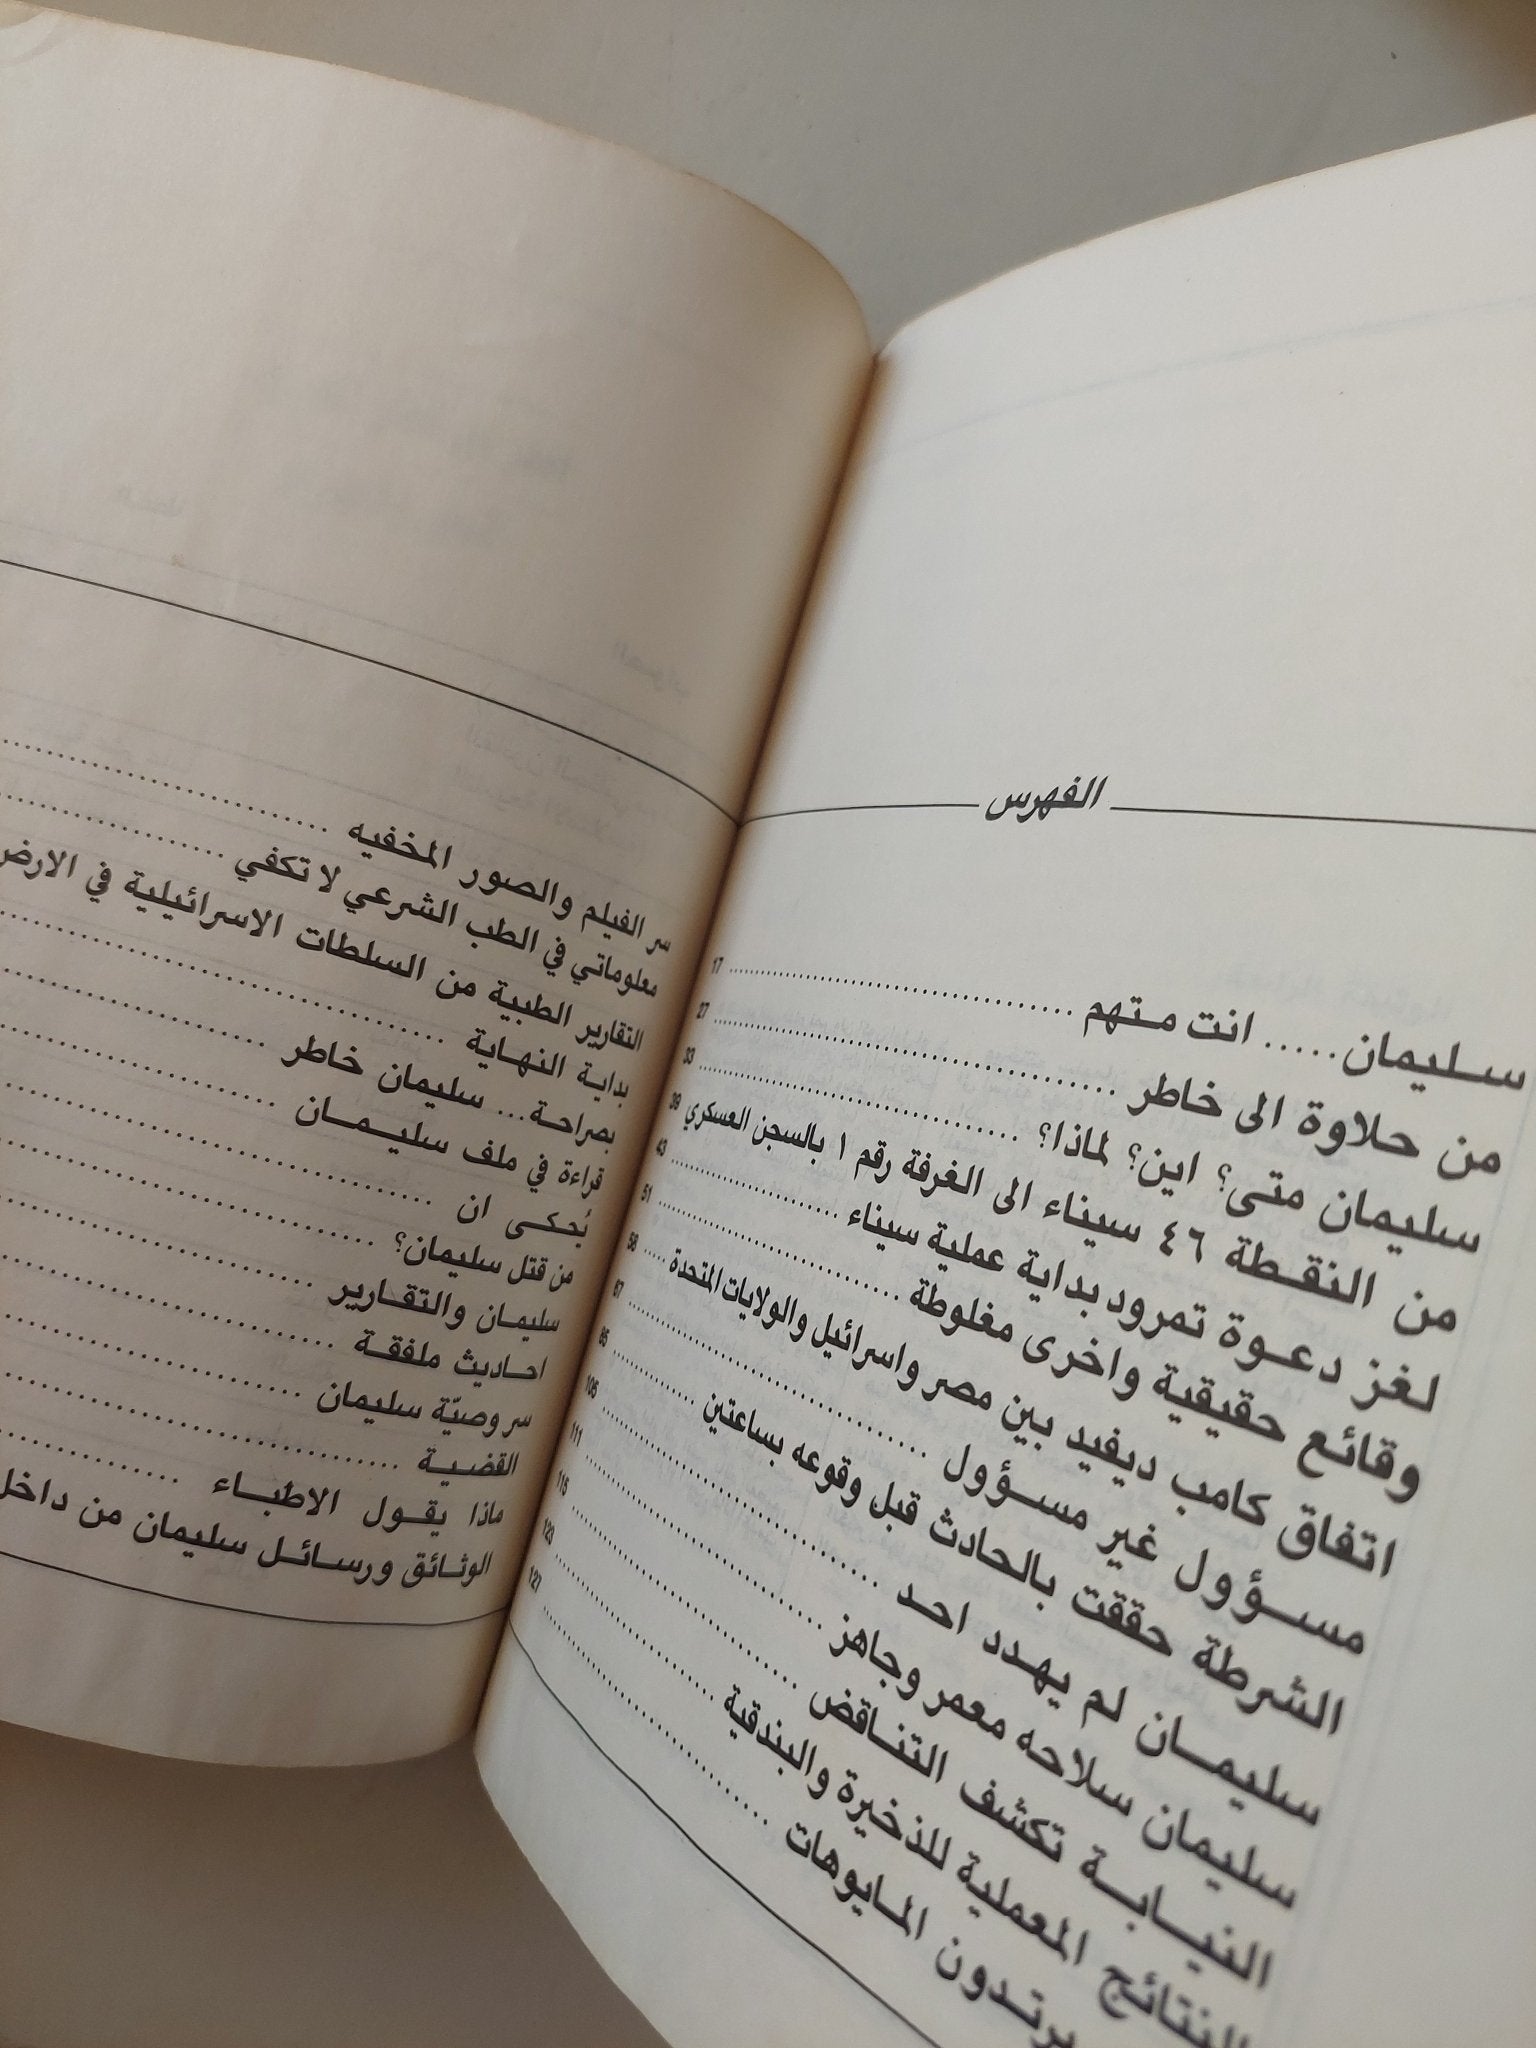 الفهرس
سليمان..... انت متهم .......... 17
من حلاوة الى خاطر .......... 27
سليمان متى؟ اين؟ لماذا؟ .......... 33
من النقطة ٤٦ سيناء الى الغرفة رقم ١ بالسجن العسكري 39
لغز دعوة تمرود بداية عملية سيناء .......... 43
وقائع حقيقية واخرى مغلوطة .......... 51
اتفاق كامب ديفيد بين مصر واسرائيل والولايات المتحدة ..... 58
مسؤول غير مسؤول .......... 67
الشرطة حققت بالحادث قبل وقوعه بساعتين .......... 95
سليمان لم يهدد احد .......... 105
سليمان سلاحه معمر وجاهز .......... 111
النيابة تكشف التناقض .......... 115
النتائج المعملية للذخيرة والبندقية .......... 123
يرتدون المايوهات .......... 127
سر الفيلم والصور المخفيه ..........
معلوماتي في الطب الشرعي لا تكفي ..........
التقارير الطبية من السلطات الاسرائيلية في الارض
بداية النهاية ..........
بصراحة... سليمان خاطر ..........
قراءة في ملف سليمان ..........
يُحكى ان ..........
من قتل سليمان؟ ..........
سليمان والتقارير ..........
احاديث ملفقة ..........
سر وصيّة سليمان ..........
القضية ..........
ماذا يقول الاطباء ..........
الوثائق ورسائل سليمان من داخل